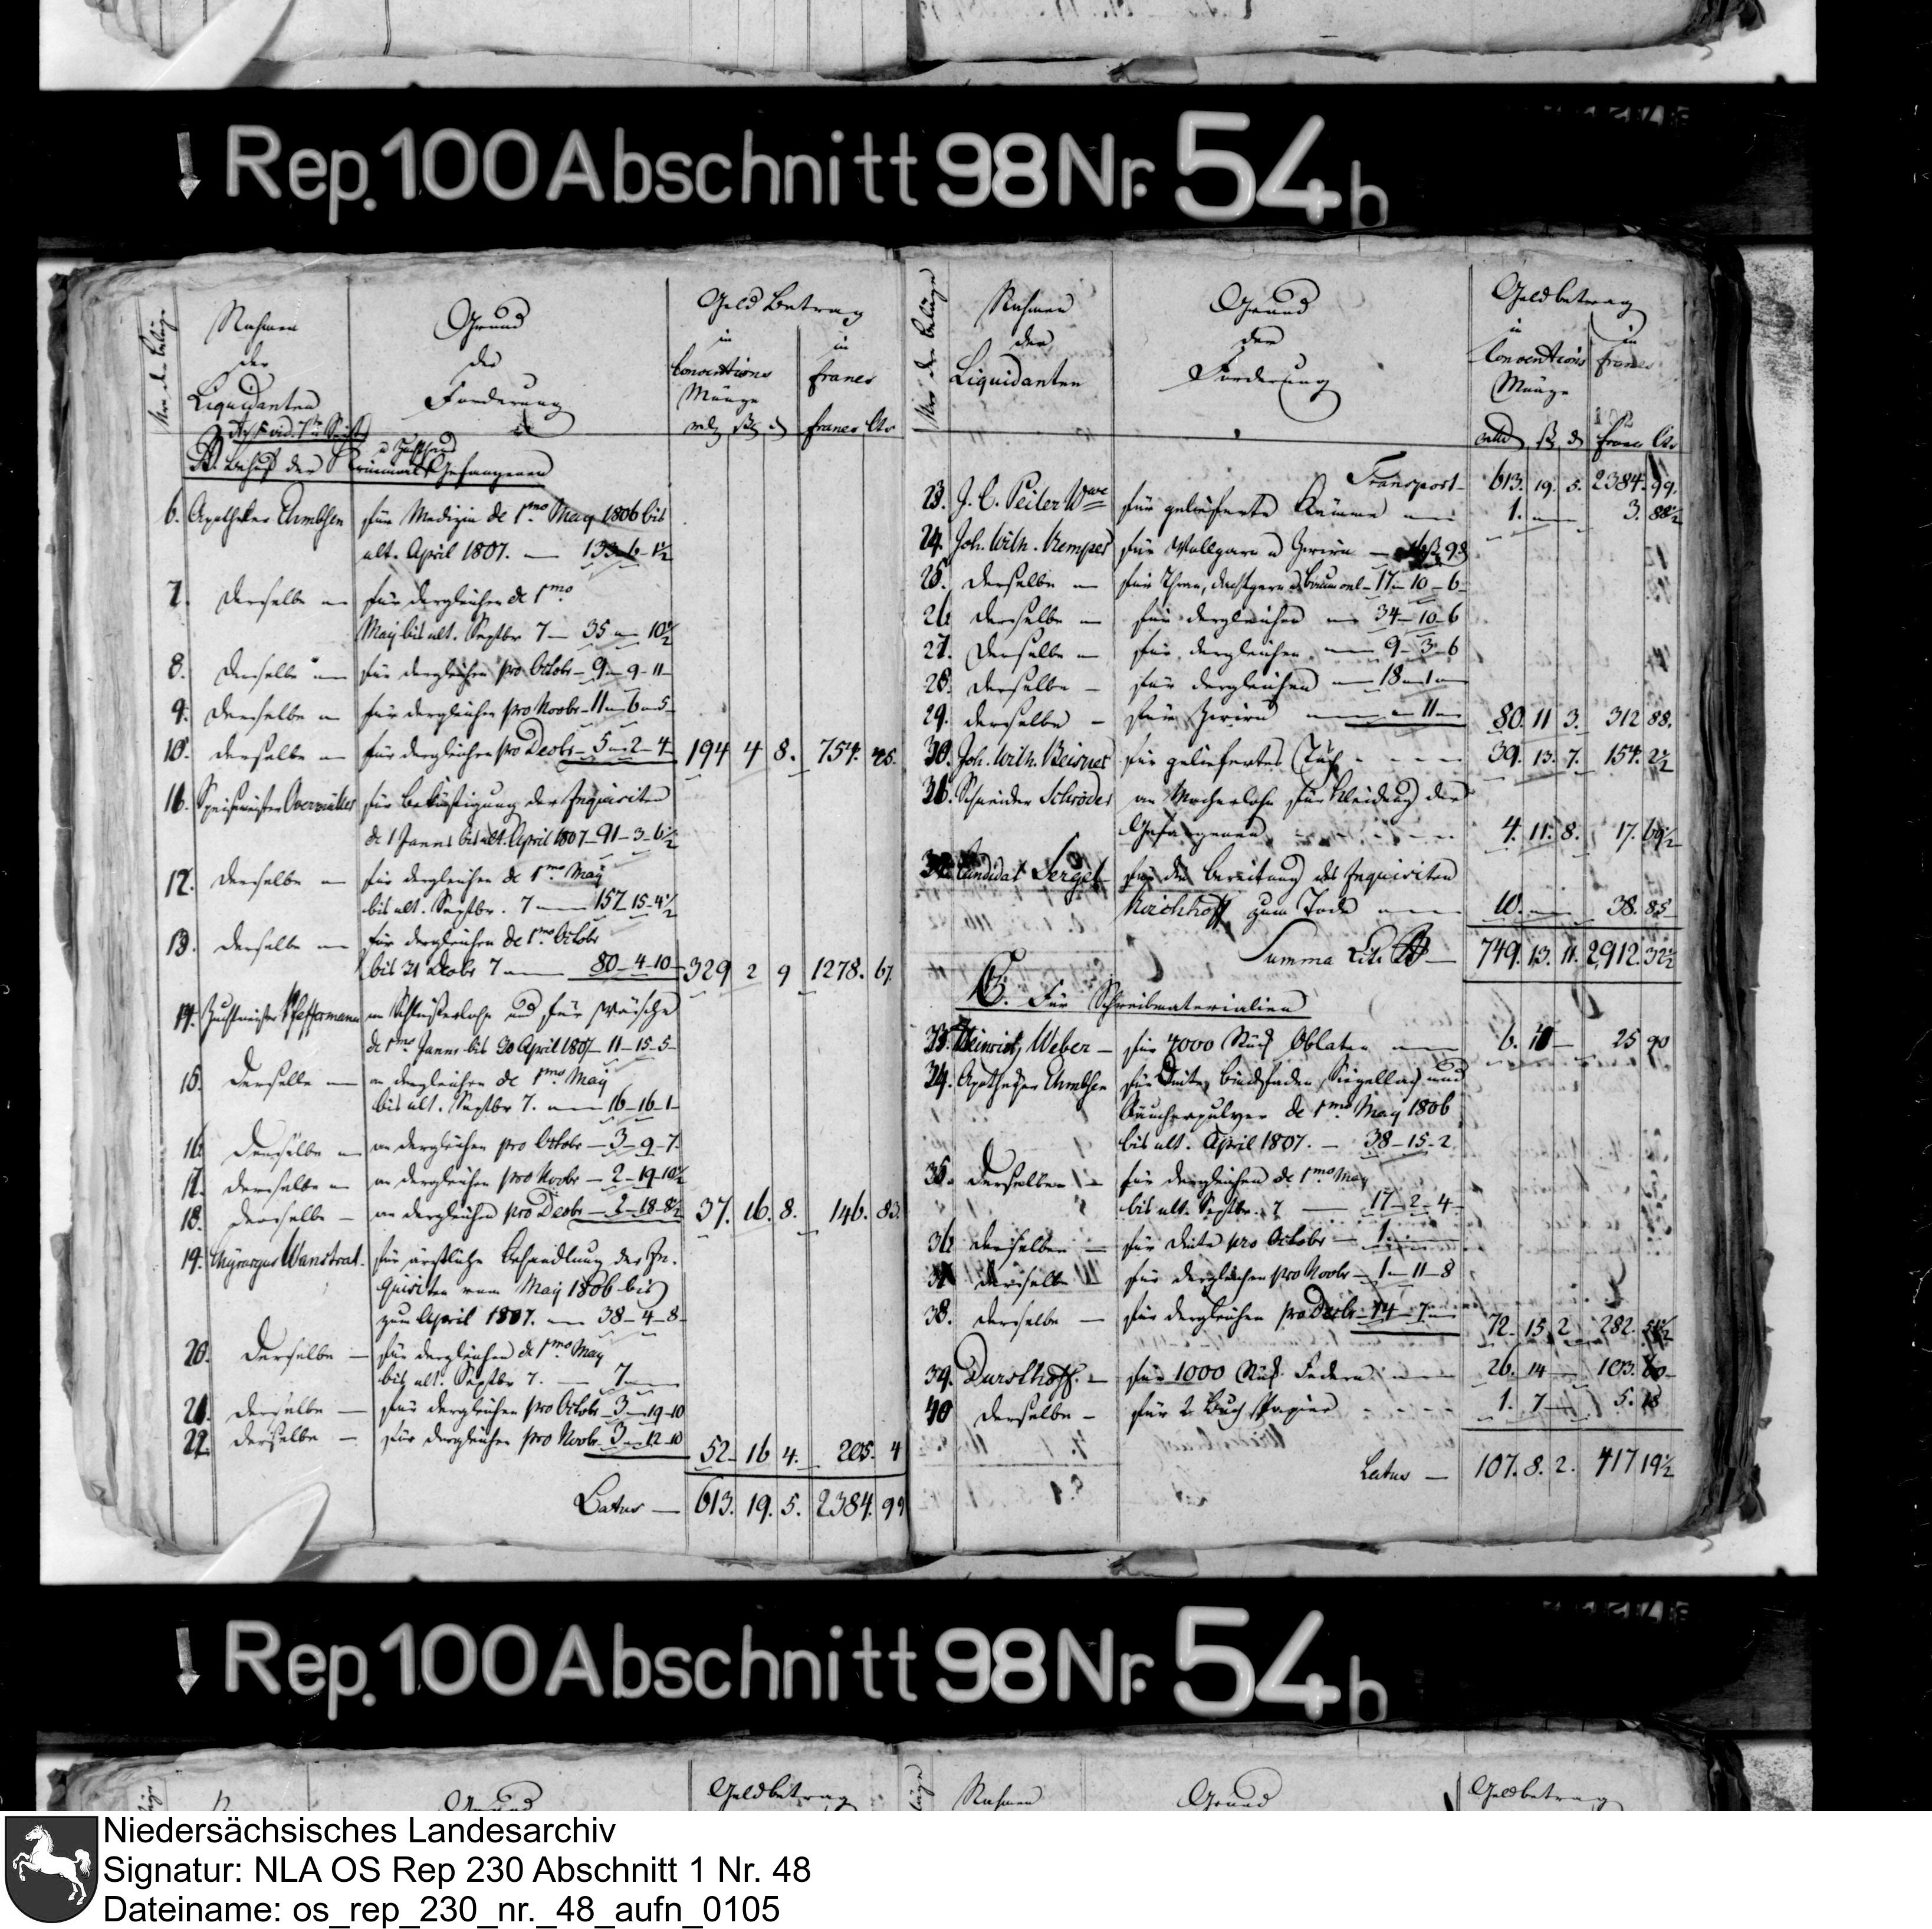 Rep. 100 Abschnitt 98 Nr. 54b
Nro der Beläge
Nahmen
der
Liquidanten
Grund
der
Forderung
Geld Betrag
in
Conventions
Münze
in
francs
francs Cts
Behuf der Criminal Gefangenen
6. Apotheker Ehmbsen für Medizin de 1mo May 1806 bis
ult. April 1807. — 133-6-1½
7. Derselbe für dergleichen de 1mo
May bis ult. Septbr 7 — 35 — 10½
8. Derselbe für dergleichen pro Octobr — 9 — 9 - 11
9. Derselbe für dergleichen pro Novbr — 11 — 6 — 5
10. Derselbe für dergleichen pro Decbr — 5 — 2 — 4 194 4 8. 754.
11. Speisemeister für Beköstigung der Inquisiten
de 1 Januar bis ult. April 1807 - 91 - 3 - 6½
12. Derselbe für dergleichen de 1mo May
bis ult. Septbr. 7 — 157-15-4½
13. Derselbe für dergleichen de 1mo Octobr
bis 31 Decbr 7 — 80-4-10 329 2 9 1278. 67
14. Zuchtmeister Pfeffermann an Schließerlohn und für Wäsche
de 1mo Januar bis 30 April 1807 - 11-15-5
15. Derselbe an dergleichen de 1mo May
bis ult. Septbr 7. — 16-16-1
16. Derselbe an dergleichen pro Octobr — 3-9-7
17. Derselbe an dergleichen pro Novbr — 2-19-10½
18. Derselbe an dergleichen pro Decbr — 2-18-8½ 37. 16. 8. 146. 83.
19. Chyrurgus Wanstrat für ärztliche Behandlung der In-
quisiten vom May 1806 bis
zum April 1807. — 38-4-8
20. Derselbe für dergleichen de 1mo May
bis ult. Septbr 7. — 7 —
21. Derselbe für dergleichen pro Octobr 3-19-10
22. Derselbe für dergleichen pro Novbr 3-12-10
52. 16 4. 205. 4
Latus — 613. 19. 5. 2384. 99
Nro der Beläge
Nahmen
der
Liquidanten
Grund
der
Forderung
Geldbetrag
in
Conventions
Münze
in
francs
Transport 613. 19. 5. 2384. 99.
23. J. C. Peiler Wwe für gelieferte Kämme 1. — 3. 88½
24. Joh. Wilh. Kemper für Wollgarn u Zwirn
25. Derselbe für Thran, Dachtgarn u Baumoel — 17 — 10 — 6
26. Derselbe für dergleichen 34-10-6
27. Derselbe für dergleichen 9-3-6
28. Derselbe für dergleichen 18 — 1 —
29. Derselbe für Zwirn — 11 — 80. 11 3. 312 88.
30. Joh. Wilh. für geliefertes Tuch 39. 13. 7. 154. 2½
31. Schneider Schröder an Macherlohn für Kleidung der
Gefangenen 4. 11. 8. 17. 69½
32. Candidat Sergel für die Bereitung des Inquisiten
Kirchhoff zum Tode 10. — 38. 85
Summa 749. 13. 11. 2912. 32½
Für Schreibmaterialien
33. Heinrich Weber für 4000 Stück Oblaten 6. — 25 90
34. Apotheker Ehmbsen für Dinte, Bindfaden, Siegellack und
Räucherpulver de 1mo May 1806
bis ult. April 1807. — 38-15-2
35. Derselbe für dergleichen de 1mo May
bis ult. Septbr. 7 — 17-2-4
36. Derselbe für Dinte pro Octobr — 1. —
37. Derselbe für dergleichen pro Novbr — 1 — 11-8
38. Derselbe für dergleichen pro Decbr 14 7
72. 15. 2 282.
39. Dursthoff für 1000 Stück Federn 26. 14 — 103. 60
40 Derselbe für 2 Buch Papier 1. 7 — 5. 18
Latus — 107. 8. 2. 417 19½
Rep. 100 Abschnitt 98 Nr. 54b
Grund
Geldbetrag
Nahmen
Grund
Geldbetrag
Niedersächsisches Landesarchiv
Signatur: NLA OS Rep 230 Abschnitt 1 Nr. 48
Dateiname: os_rep_230_nr._48_aufn_0105